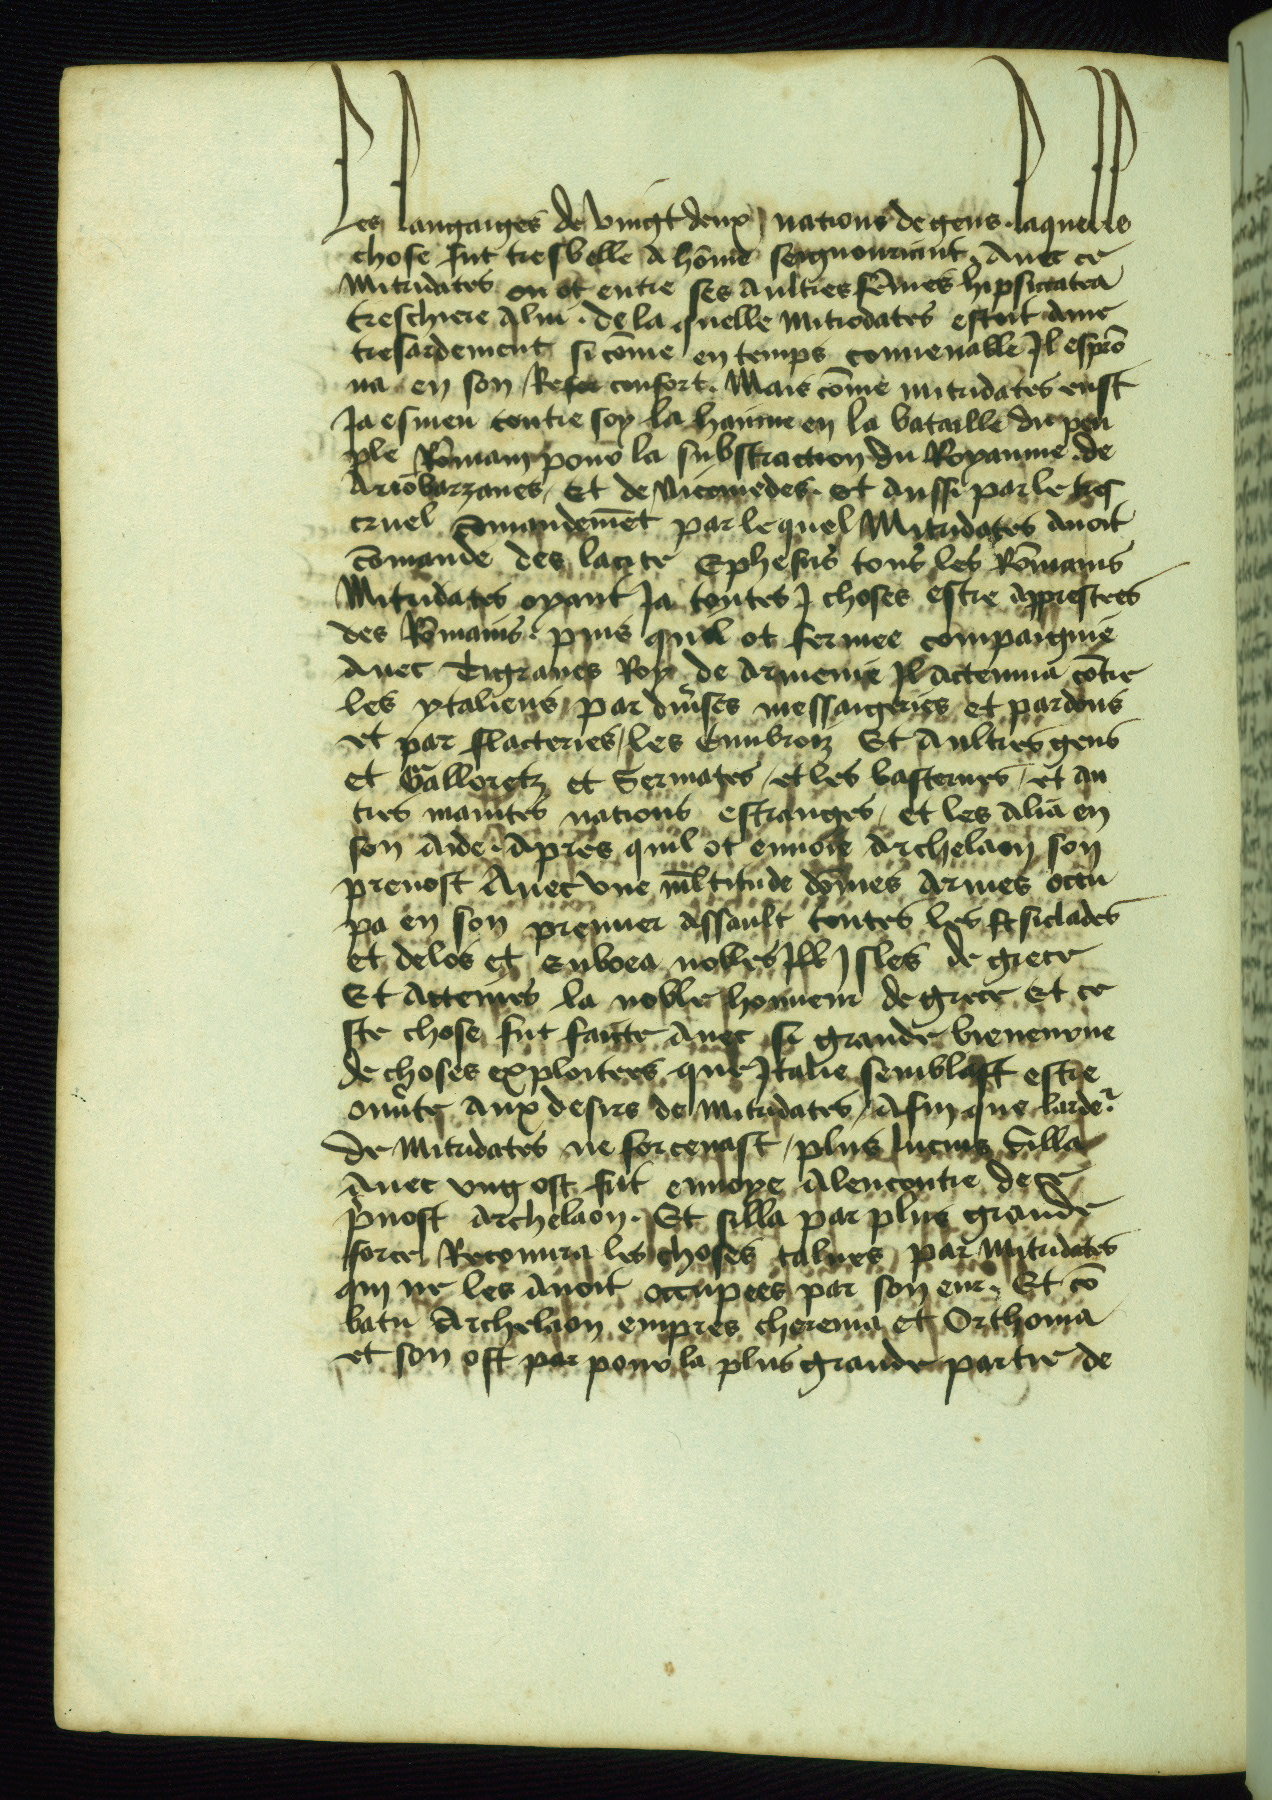 Les langaiges de vingt deux nations de gens. laquelle
chose fut tresbelle a hōme seignouriant. Auec ce
Mitridates en ot entre ses aultres fēmes hipsicratea
treschiere a lui. de la quelle Mitrodates estoit ame
tresardement si cōme en temps conuenable Il esprō
ua en son confort. Mais cōme mitridates eust
Ja esmeu contre soy la hainne en la bataille du peu
ple Rōmain pour la substraction du Royaume de
Ariobarzanes, Et de Nicomedes. et aussi par le tres
cruel cōmandemēt par le quel Mitridates auoit
cōmande des la cite Ephesus tous les Rōmains
Mitridates oyant Ja toutes choses estre apprestees
des Rōmains. puis quil ot fermee compaignie
auec Tigranes Roy de Armenie Il actenua cōtre
les ytaliens par diuses messaigeries et par dons
et par flacteries, les Cimbroiz Et aultres gens
et Galloretz et Sermates, et les basternes, et au
tres maintes nations estranges, et les alia en
son aide. Apres quil ot enuoie Archelaon son
preuost Auec vne mltitude dōmes armes occu
pa en son premier assault toutes les siclades
et delos et Euboea nobles Isles de grece
Et Actenies la noble honneur de grece Et ce
ste chose fut faicte auec si grande bieneurue
de choses exploitees que Italie semblast estre
ouute aux desirs de Mitridates, Afin que larde.
De Mitridates ne forcenast, plus lucius Silla
Auec ung ost fut enuoye alencontre de ce
puost Archelaon. Et silla par plus grande
force Recouura les choses tolues par Mitridates
qui ne les auoit occupees par son eur. Et cō
batu Archelaon empres cherenia et Orthonia
et son ost par pour la plus grande partie de